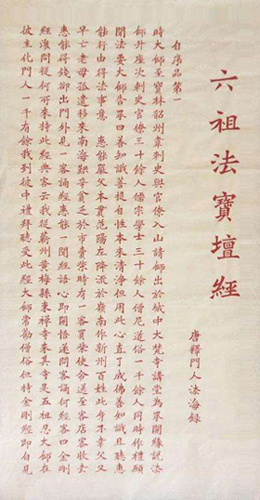 六祖法寶壇經
唐釋門人法海錄
自序品第一
時大師至寶林韶州韋刺史與官僚入山請師出於城中大梵寺講堂為眾開緣說法
師升座次刺史官僚三十餘人儒宗學士三十餘人僧尼道俗一千餘人同時作禮願
聞法要大師告眾曰善知識菩提自性本來清淨但用此心直了成佛善知識且聽惠
能行由得法事意惠能嚴父本貫范陽左降流於嶺南作新州百姓此身不幸父又
早亡老母孤遺移來南海艱辛貧乏於市賣柴時有一客買柴使令送至客店客收去
惠能得錢卻出門外見一客誦經惠能一聞經語心即開悟遂問客誦何經客曰金剛
經復問從何所來持此經典客云我從蘄州黃梅縣東禪寺來其寺是五祖忍大師在
彼主化門人一千有餘我到彼中禮拜聽受此經大師常勸僧俗但持金剛經即自見